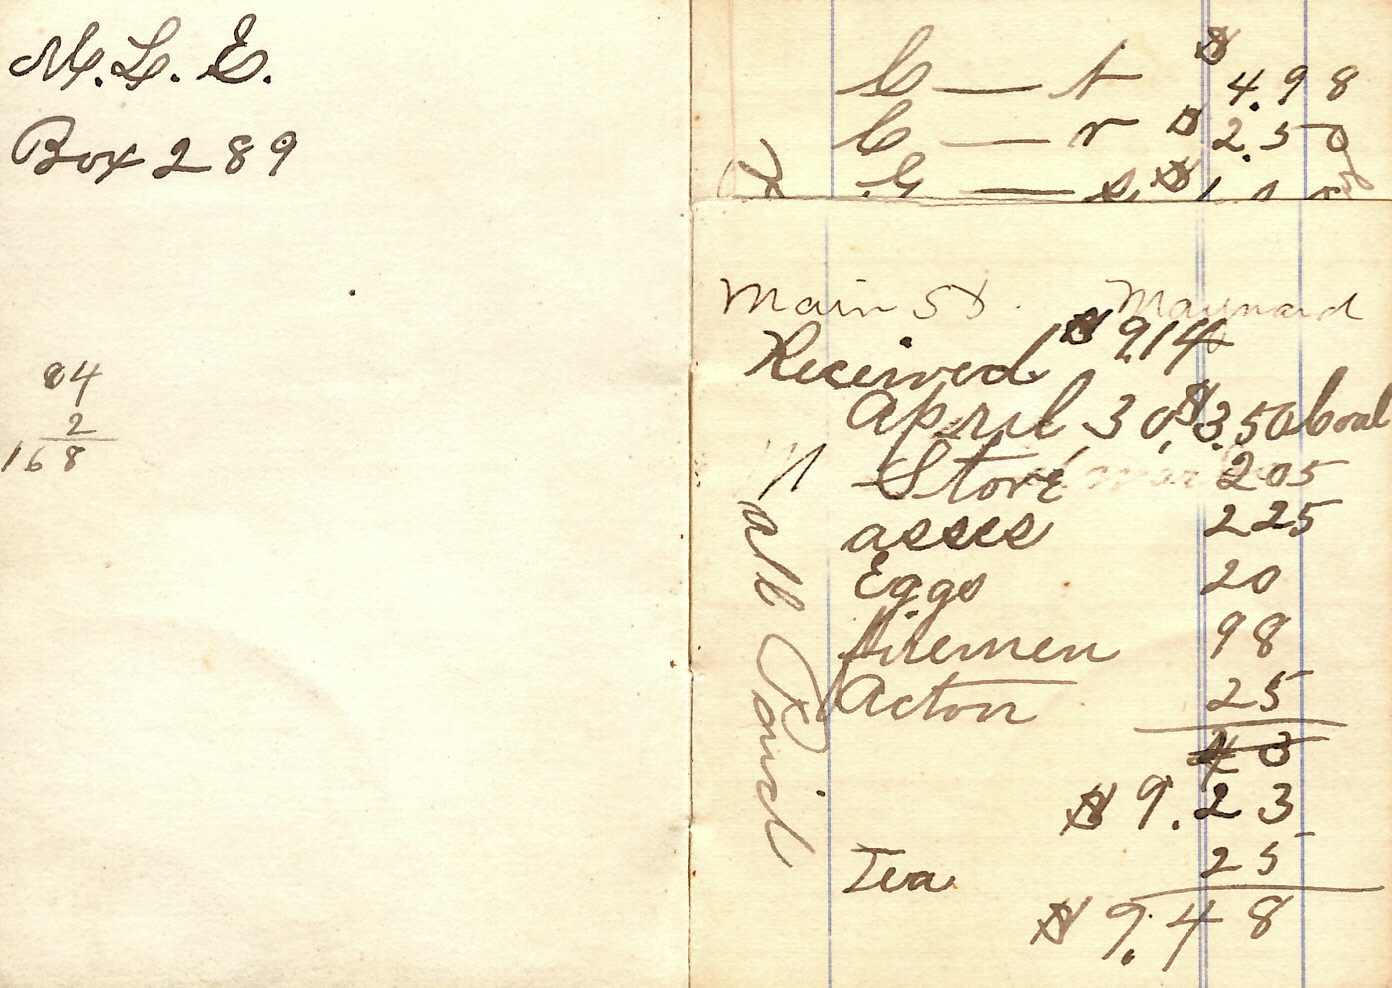 M. L. E.
Box 289
84
2
168
C — t $4.98
C — r $2.50
G — s $1.00
Main St. Maynard
Received $9.14
April 30, $3.50 Coal
Store 205
asses 225
Eggs 20
Firemen 98
Acton 25
43
$9.23
Tea 25
$9.48
All Paid